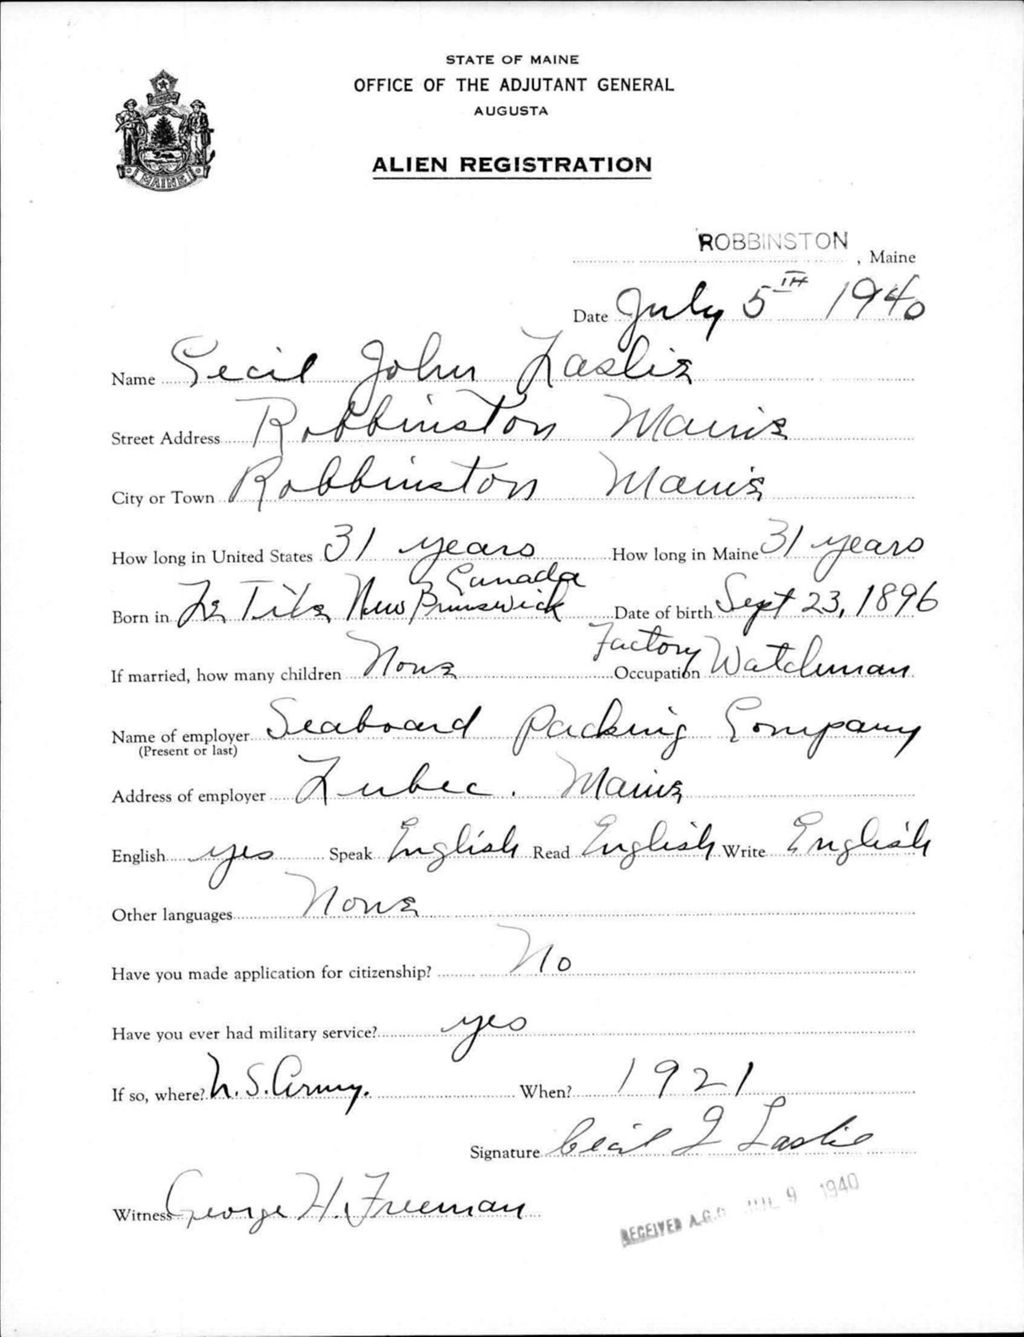 STATE OF MAINE
OFFICE OF THE ADJUTANT GENERAL
AUGUSTA
MAINE
ALIEN REGISTRATION
ROBBINSTON, Maine
Date July 5TH 1940
Name Cecil John Laslie
Street Address Robbinston Maine
City or Town Robbinston Maine
How long in United States 31 years How long in Maine 31 years
Canada
Born in Le Tite New Brunswick Date of birth Sept 23, 1896
If married, how many children None Occupation Factory Watchman
Name of employer Seaboard Packing Company
(Present or last)
Address of employer Lubec. Maine
English yes Speak English Read English Write English
Other languages None
Have you made application for citizenship? No
Have you ever had military service? yes
If so, where? U.S. Army. When? 1921
Signature Cecil J Laslie
Witness George H. Freeman
RECEIVED A.G.O. JUL 9 1940